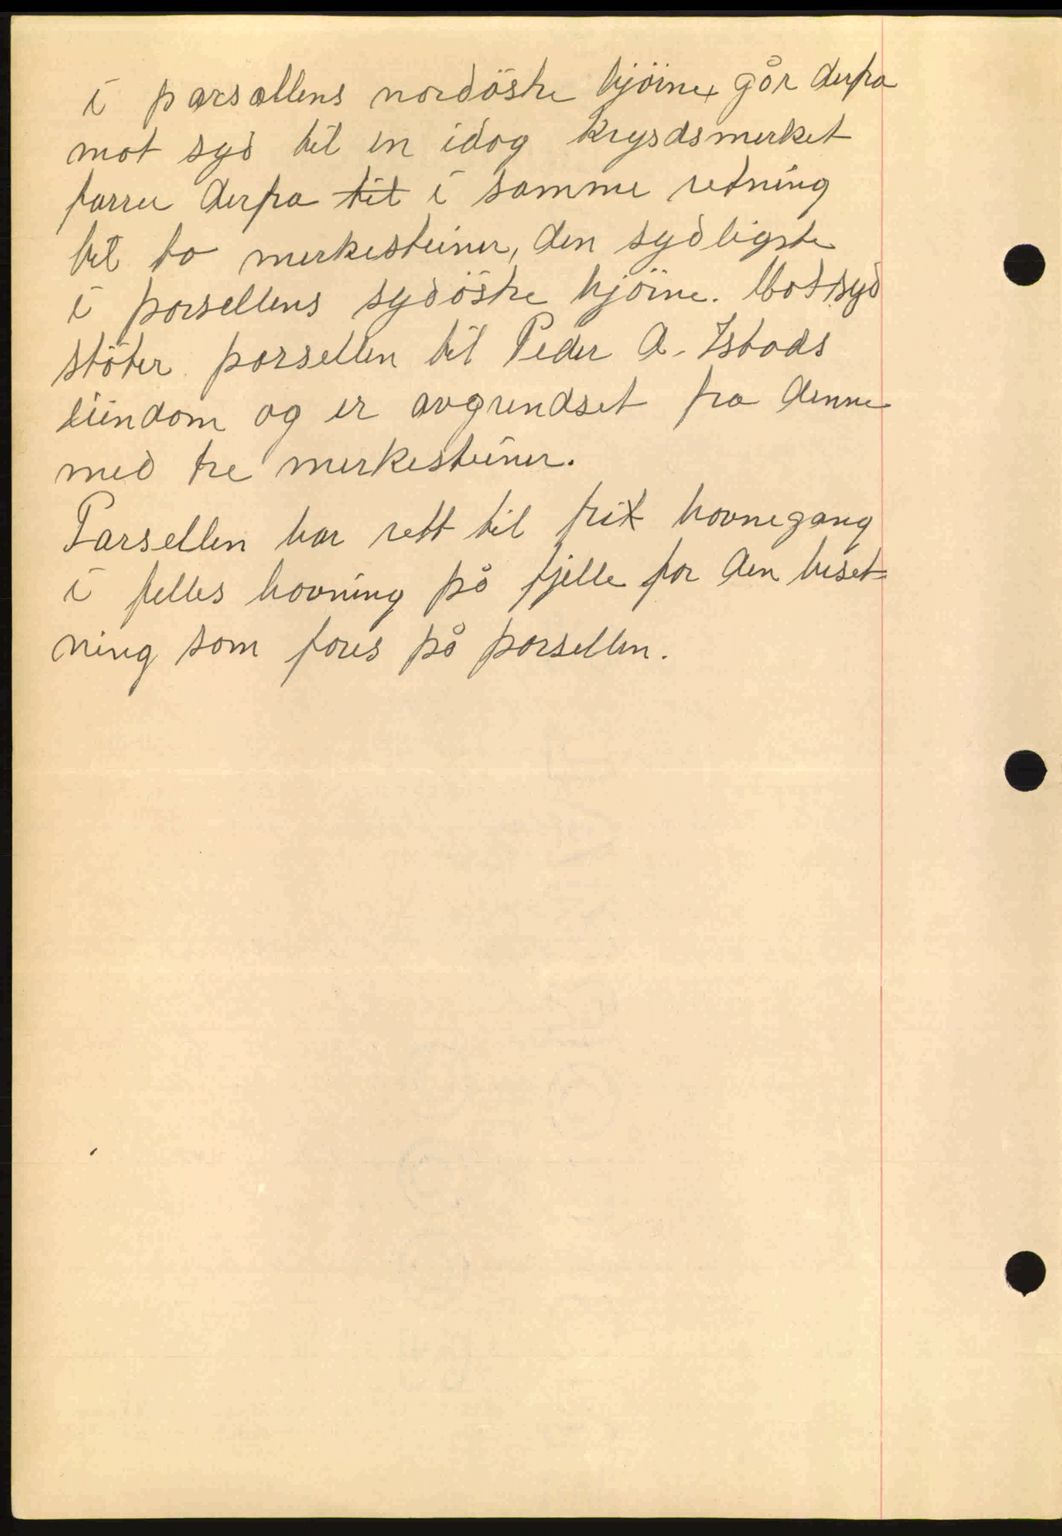 i parsellens nordöstre hjörne, går derfra
mot syd til en idag krysdsmerket
farrer derfra ~~til~~ i samme retning
til to merkesteiner, den sydligste
i parsellens sydöstre hjörne. Mot syd
stöter parsellen til Peder A. Istads
eiendom og er avgrendset fra denne
med tre merkesteiner.
Parsellen har rett til frit havnegang
i felles havning på fjelle for den beset-
ning som fores på parsellen.